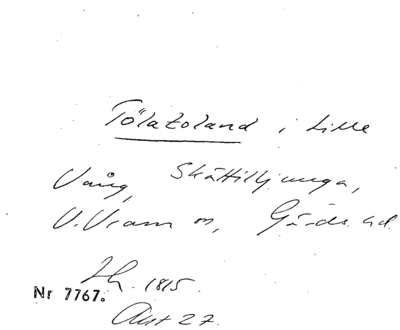 Tölatoland i Lille
Vång, Skättilljunga,
V. Vram sn, Gärds hd.
Th. 1815.
Nr 7767.
Aut 27.